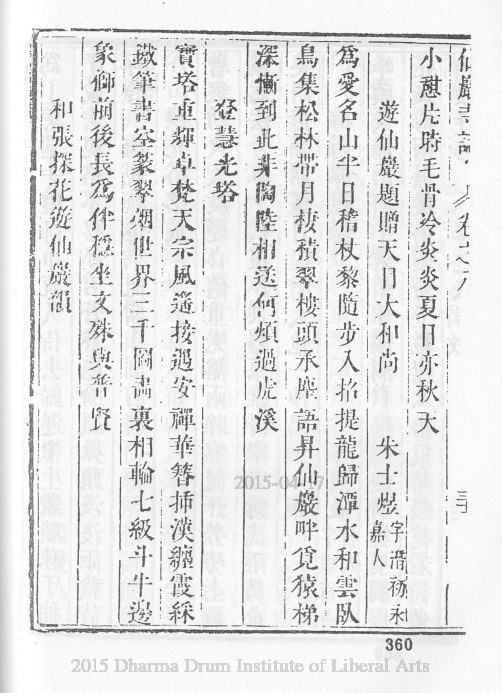 仙巖寺誌 卷之八 三十
小憇片時毛骨冷炎炎夏日亦秋天
遊仙巖題贈天目大和尚 朱士煜 字溍礽永嘉人
爲愛名山半日稽杖黎隨步入招提龍歸潭水和雲臥
鳥集松林帶月棲積翠樓頭承塵語昇仙巖畔覓猿梯
深慚到此非陶陸相送何煩過虎溪
登慧光塔
寶塔重輝卓梵天宗風遙接遇安禪華簪揷漢纏霞綵
鐵筆書空篆翠烟世界三千圖畫裏相輪七級斗牛邊
象仰前後長爲伴穩坐文殊與普賢
和張探花遊仙巖韻
2015-04-17
360
2015 Dharma Drum Institute of Liberal Arts